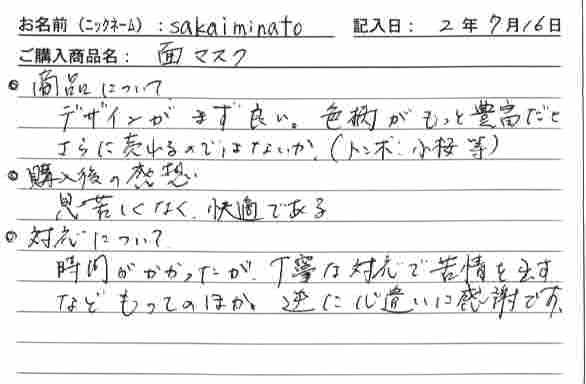 お名前（ニックネーム）：sakaiminato　記入日：２年７月16日
ご購入商品名：面マスク
◎商品について
デザインがまず良い。色柄がもっと豊富だと
さらに売れるのではないか。（トンボ・小桜等）
◎購入後の感想
息苦しくなく、快適である
◎対応について
時間がかかったが、丁寧な対応で苦情を出す
などもってのほか。逆に心遣いに感謝です。